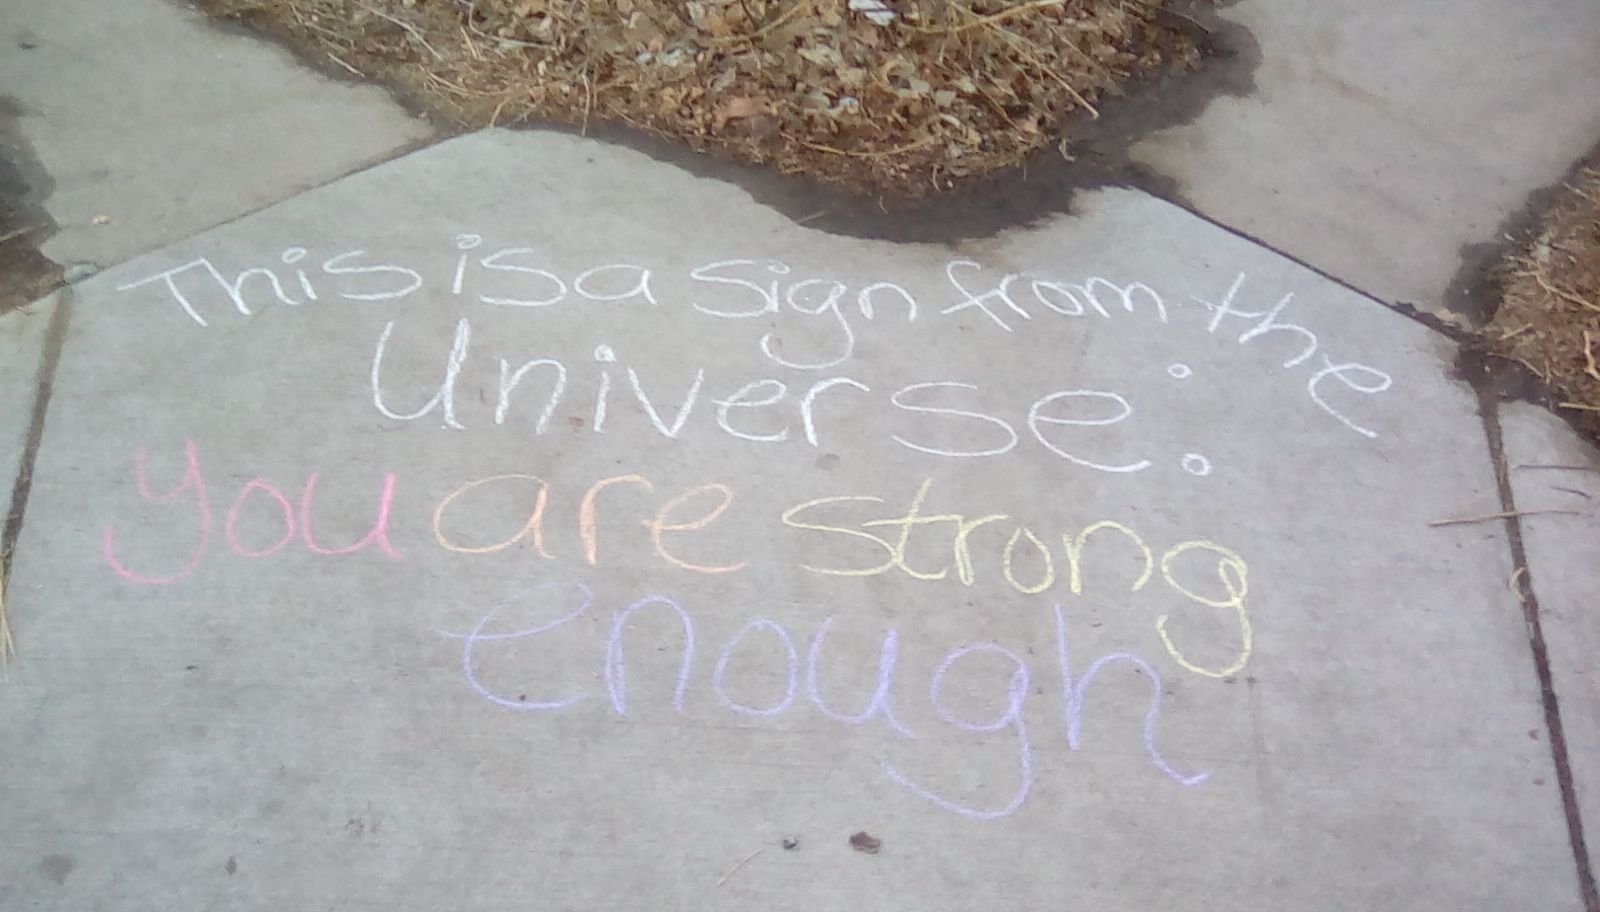 This is a sign from the
Universe:
you are strong
enough